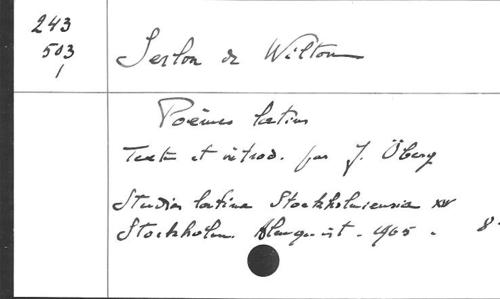 243
503
1
Serlon de Wilton
Poèmes latins
Texte et introd. par J. Öberg
Studia latina Stockholmiensia XIV
Stockholm. Almquist. 1965.
8°